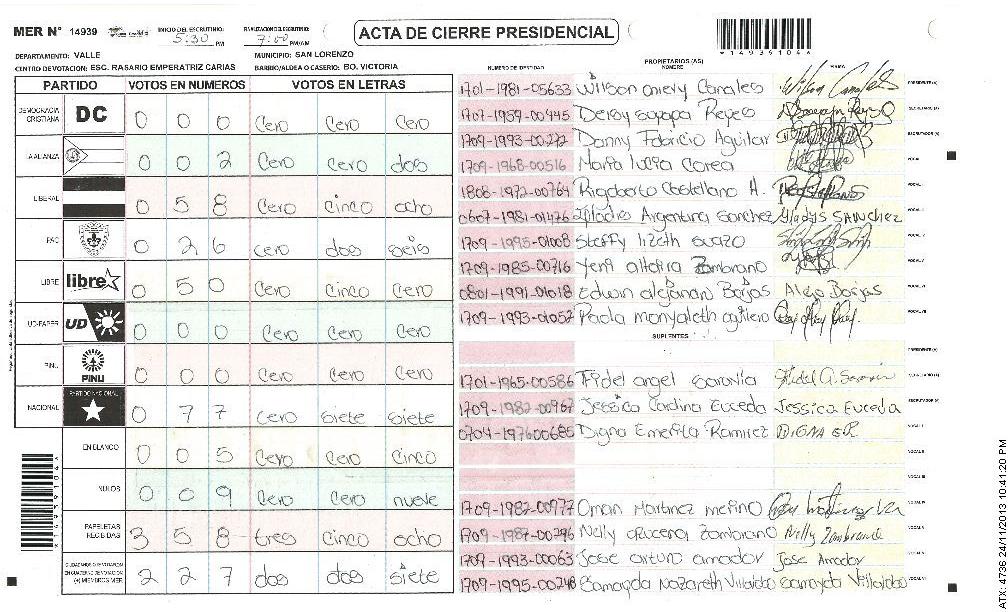 MER N° 14939
INICIO DEL ESCRUTINIO: 5:30 PM
FINALIZACION DEL ESCRUTINIO: 7:00 PM/AM
ACTA DE CIERRE PRESIDENCIAL
*14939104*
DEPARTAMENTO: VALLE
MUNICIPIO: SAN LORENZO
CENTRO DE VOTACION: ESC. RASARIO EMPERATRIZ CARIAS
BARRIO/ALDEA O CASERIO: BO. VICTORIA
PARTIDO VOTOS EN NUMEROS VOTOS EN LETRAS
DEMOCRACIA CRISTIANA DC 0 0 0 Cero Cero Cero
LA ALIANZA 0 0 2 Cero Cero dos
LIBERAL 0 5 8 Cero Cinco ocho
PAC 0 2 6 cero dos seis
LIBRE libre 0 5 0 Cero Cinco Cero
UD-FAPER UD 0 0 0 Cero Cero Cero
PINU PINU 0 0 0 Cero Cero Cero
NACIONAL PARTIDO NACIONAL 0 7 7 cero siete siete
EN BLANCO 0 0 5 Cero Cero cinco
NULOS 0 0 9 Cero Cero nueve
PAPELETAS RECIBIDAS 3 5 8 tres Cinco ocho
(+) MIEMBROS MER 2 2 7 dos dos siete
NUMERO DE IDENTIDAD
PROPIETARIOS (AS)
NOMBRE
FIRMA
1701-1981-05633 Wilson Canales
1707-1959-00445 Deisy suyapa Reyes
1709-1993-00272 Danny Fabricio Aguilar
1709-1968-00516 Maria lucia Correa
1808-1972-00764 Rigoberto Castellano A.
0607-1981-01476 Argentina Sanchez Gladys SANCHEZ
1709-1995-01008 Steffy lizeth suazo
1709-1985-00716 Yeni altagira Zambrano
0801-1991-01018 Edwin alejandro Borjas Alejo Borjas
1709-1993-01052 Paola
SUPLENTES
1701-1965-00586 Fidel angel Saravia Fidel A. Saravia
1709-1982-00967 Jessica Carolina Euceda Jessica Euceda
0704-197600685 Digna Emerita Ramirez DIGNA E.R.
1709-1982-00977 Oman Martinez merino
1709-1987-00296 Nelly azucena Zambrano Nelly Zambrano
1709-1993-00063 Jose arturo amador Jose Amador
1709-1995-00248 Samayda Nazareth
ATX: 4736 24/11/2013 10:41:20 PM